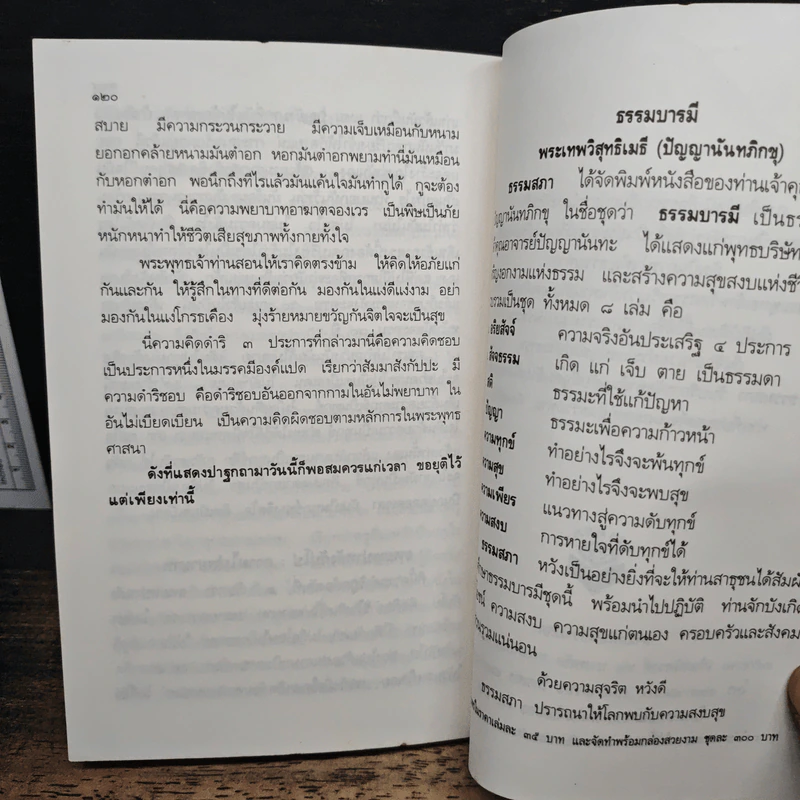 ๑๒๐
สบาย มีความกระวนกระวาย มีความเจ็บเหมือนกับหนาม
ยอกอกคล้ายหนามมันตำอก หอกมันตำอกพยามทำนี่มันเหมือน
กับหอกตำอก พอนึกถึงทีไรแล้วมันแค้นใจมันทำกูได้ กูจะต้อง
ทำมันให้ได้ นี่คือความพยาบาทอาฆาตจองเวร เป็นพิษเป็นภัย
หนักหนาทำให้ชีวิตเสียสุขภาพทั้งกายทั้งใจ
พระพุทธเจ้าท่านสอนให้เราคิดตรงข้าม ให้คิดให้อภัยแก่
กันและกัน ให้รู้สึกในทางที่ดีต่อกัน มองกันในแง่ดีแง่งาม อย่า
มองกันในแง่โกรธเคือง มุ่งร้ายหมายขวัญกันจิตใจจะเป็นสุข
นี่ความคิดดำริ ๓ ประการที่กล่าวมานี่คือความคิดชอบ
เป็นประการหนึ่งในมรรคมีองค์แปด เรียกว่าสัมมาสังกัปปะ มี
ความดำริชอบ คือดำริชอบอันออกจากกามในอันไม่พยาบาท ใน
อันไม่เบียดเบียน เป็นความคิดผิดชอบตามหลักการในพระพุทธ
ศาสนา
ดังที่แสดงปาฐกถามาวันนี้ก็พอสมควรแก่เวลา ขอยุติไว้
แต่เพียงเท่านี้
ธรรมบารมี
พระเทพวิสุทธิเมธี (ปัญญานันทภิกขุ)
ธรรมสภา ได้จัดพิมพ์หนังสือของท่านเจ้าคุ
ญญานันทภิกขุ ในชื่อชุดว่า ธรรมบารมี เป็นธร
คุณอาจารย์ปัญญานันทะ ได้แสดงแก่พุทธบริษัท
อกงามแห่งธรรม และสร้างความสุขสงบแห่งชี
รวมเป็นชุด ทั้งหมด ๘ เล่ม คือ
ริยสัจจ์ ความจริงอันประเสริฐ ๔ ประการ
สัจธรรม เกิด แก่ เจ็บ ตาย เป็นธรรมดา
สติ ธรรมะที่ใช้แก้ปัญหา
ัญญา ธรรมะเพื่อความก้าวหน้า
ความทุกข์ ทำอย่างไรจึงจะพ้นทุกข์
ความสุข ทำอย่างไรจึงจะพบสุข
ความเพียร แนวทางสู่ความดับทุกข์
ความสงบ การหายใจที่ดับทุกข์ได้
ธรรมสภา หวังเป็นอย่างยิ่งที่จะให้ท่านสาธุชนได้สัมผั
ศึกษาธรรมบารมีชุดนี้ พร้อมนำไปปฏิบัติ ท่านจักบังเกิ
ความสงบ ความสุขแก่ตนเอง ครอบครัวและสังคม
รวมแน่นอน
ด้วยความสุจริต หวังดี
ธรรมสภา ปรารถนาให้โลกพบกับความสงบสุข
ราคาเล่มละ ๓๕ บาท และจัดทำพร้อมกล่องสวยงาม ชุดละ ๓๐๐ บาท